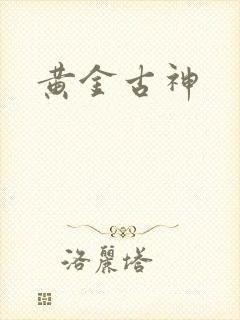 黄金古神
洛麗塔